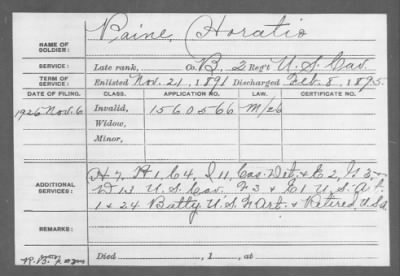 Paine, Horatio
NAME OF SOLDIER:
SERVICE: Late rank, Co. B, 2 Reg't U.S. Cav.
TERM OF SERVICE: Enlisted Nov. 21, 1891 Discharged Feb. 8, 1895.
DATE OF FILING. CLASS. APPLICATION NO. LAW. CERTIFICATE NO.
1926 Nov. 6 Invalid, 1560566 M/26
Widow,
Minor,
ADDITIONAL SERVICES: H 7, H 1, C 4, I 11, Cas. Det. & E 2, G 5
D 13 U.S. Cav. F 3 & E 1 U.S. Art.
1 & 24 Batty U.S.F. Art. & Retired, U.S.A.
REMARKS:
Died , 1 , at